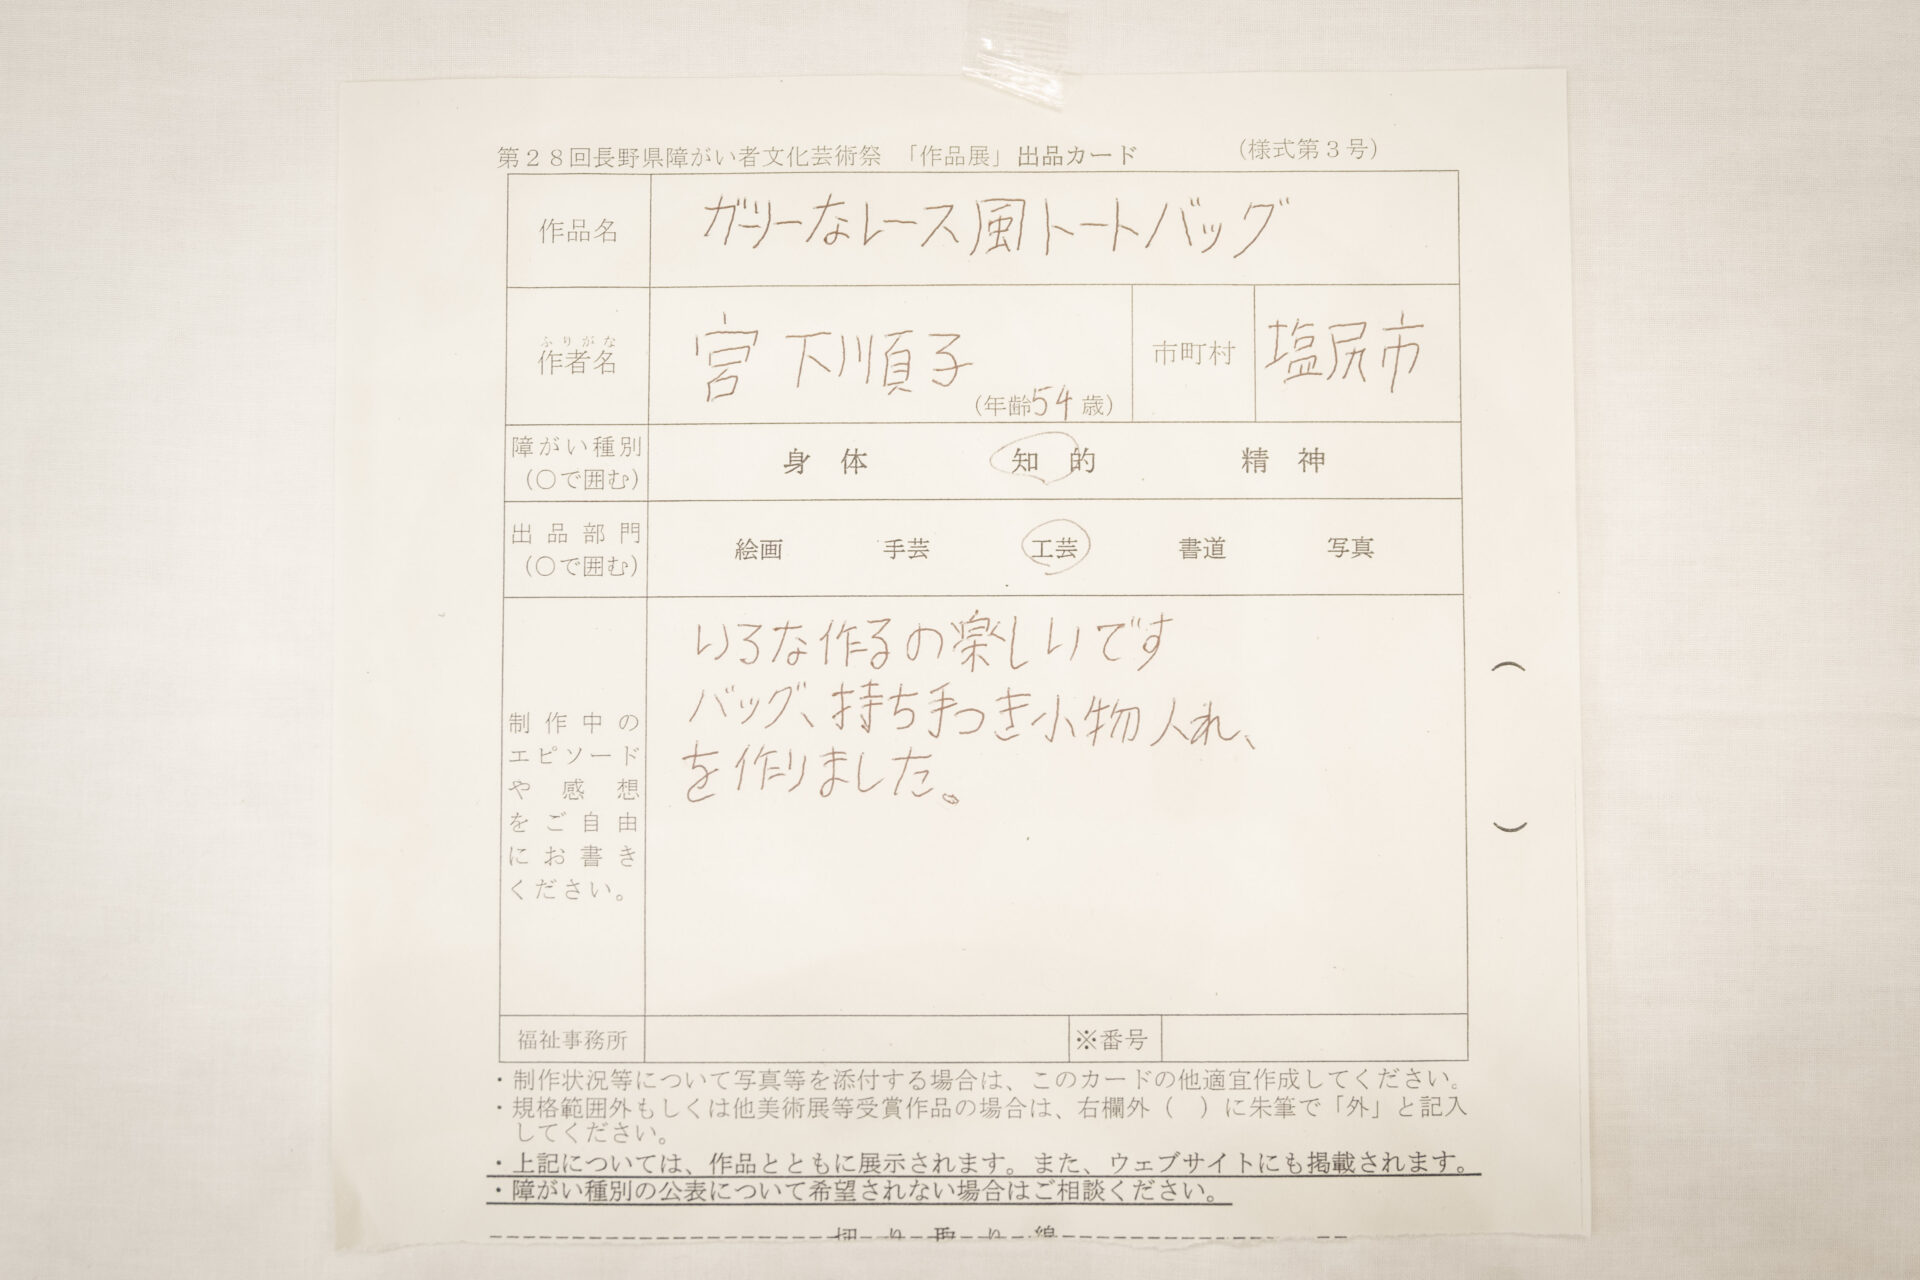 第２８回長野県障がい者文化芸術祭 「作品展」出品カード (様式第３号)
作品名 ガーリーなレース風トートバッグ
ふりがな
作者名 宮下順子 (年齢54歳) 市町村 塩尻市
障がい種別
(○で囲む) 身体 知的 精神
出品部門
(○で囲む) 絵画 手芸 工芸 書道 写真
制作中の
エピソード
や感想
をご自由
にお書き
ください。
いろな作るの楽しいです
バッグ、持ち手つき小物入れ、
を作りました。
( )
福祉事務所 ※番号
・制作状況等について写真等を添付する場合は、このカードの他適宜作成してください。
・規格範囲外もしくは他美術展等受賞作品の場合は、右欄外（ ）に朱筆で「外」と記入
してください。
・上記については、作品とともに展示されます。また、ウェブサイトにも掲載されます。
・障がい種別の公表について希望されない場合はご相談ください。
切り取り線